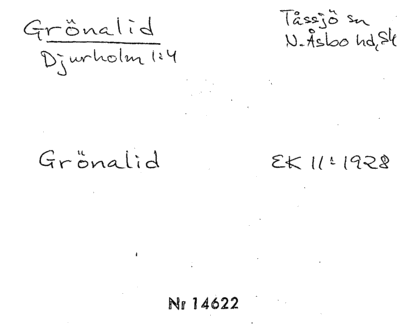 Grönalid
Djurholm 1:4
Tåssjö sn
N. Åsbo hd, Sk
Grönalid
EK 11:1928
Nr 14622